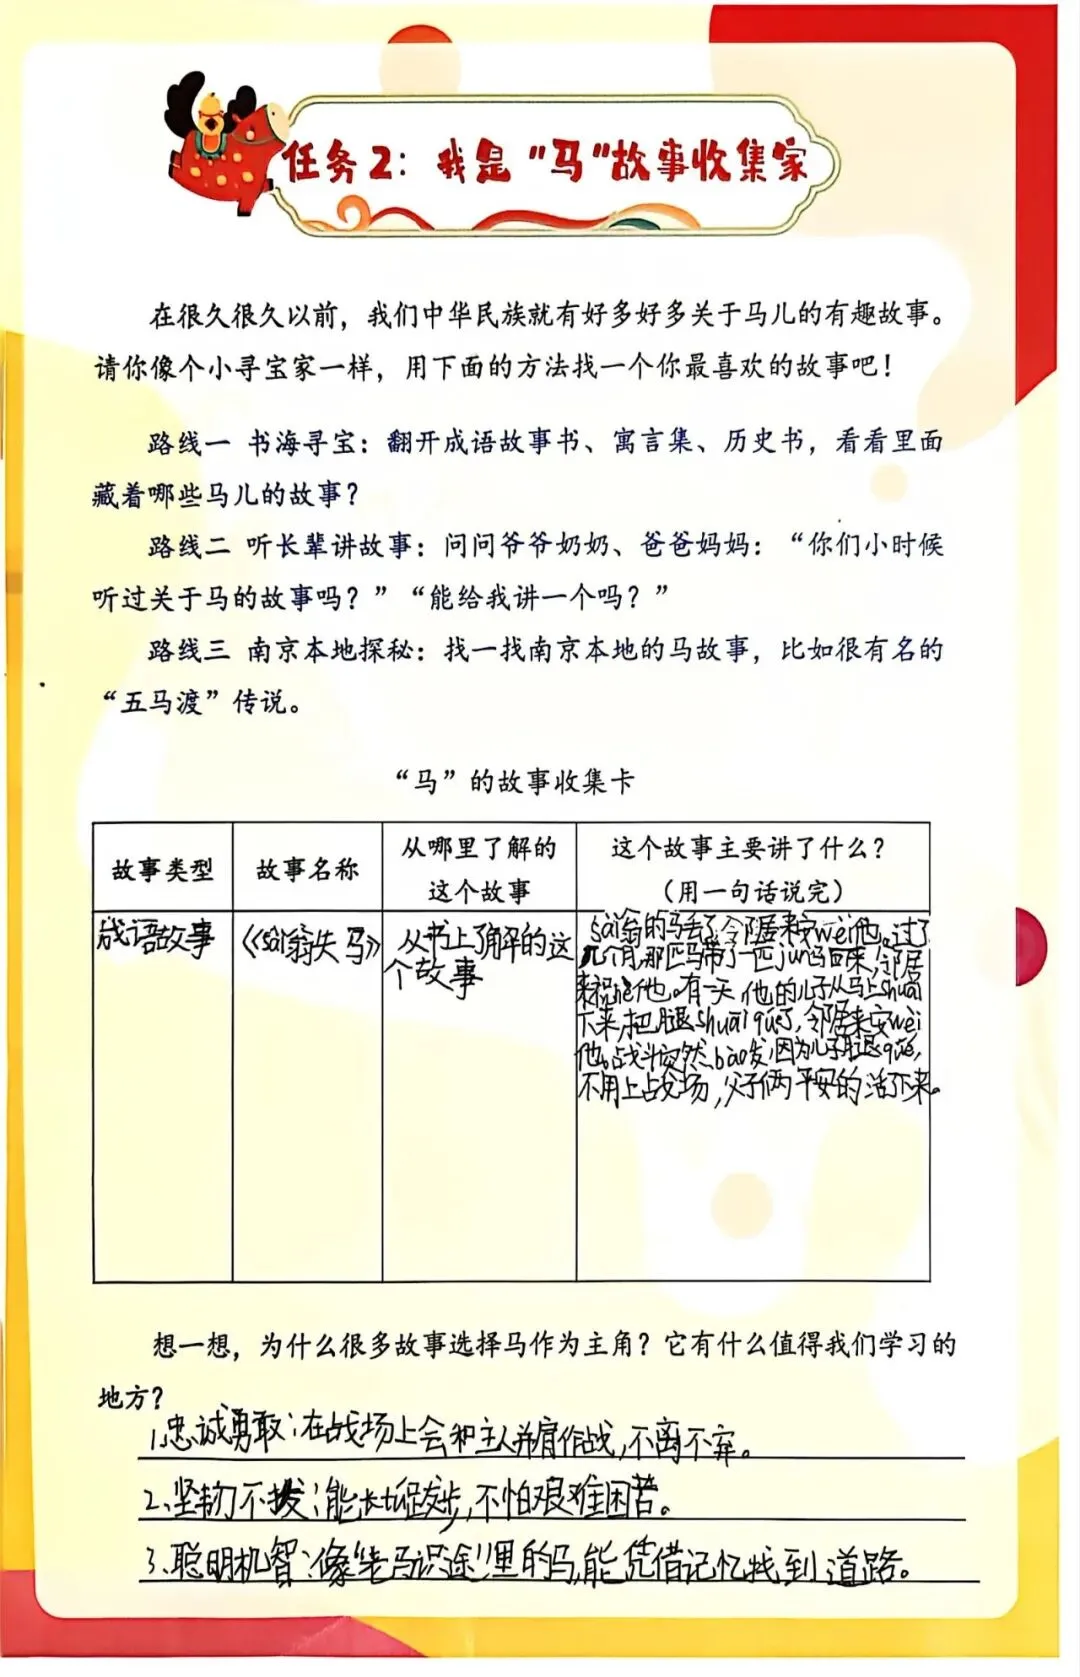 任务2：我是“马”故事收集家
在很久很久以前，我们中华民族就有好多好多关于马儿的有趣故事。
请你像个小寻宝家一样，用下面的方法找一个你最喜欢的故事吧！
路线一 书海寻宝：翻开成语故事书、寓言集、历史书，看看里面
藏着哪些马儿的故事？
路线二 听长辈讲故事：问问爷爷奶奶、爸爸妈妈：“你们小时候
听过关于马的故事吗？”“能给我讲一个吗？”
路线三 南京本地探秘：找一找南京本地的马故事，比如很有名的
“五马渡”传说。
“马”的故事收集卡
故事类型
故事名称
从哪里了解的
这个故事
这个故事主要讲了什么？
（用一句话说完）
成语故事
《sài翁失马》
从书上了解的这
个故事
sài翁的马丢了，邻居来安wèi他。过了
几个月，那匹马带了一匹jùn马回来，邻居
来祝hè他。有一天，他的儿子从马上shuāi
下来，把腿shuāi qué了，邻居来安wèi
他。战斗突然bào发，因为儿子腿qué，
不用上战场，父子俩平安的活下来。
想一想，为什么很多故事选择马作为主角？它有什么值得我们学习的
地方？
1、忠诚勇敢：在战场上会和主人并肩作战，不离不弃。
2、坚韧不拔：能长途跋涉，不怕艰难困苦。
3、聪明机智：像“老马识途”里的马，能凭借记忆找到道路。